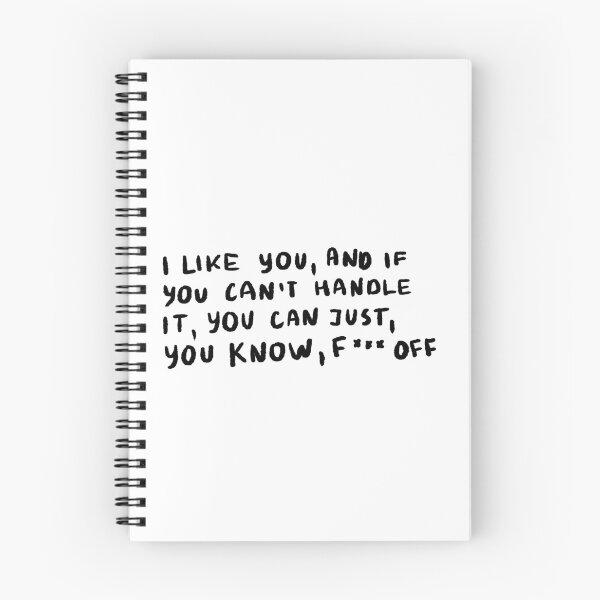 I LIKE YOU, AND IF
YOU CAN'T HANDLE
IT, YOU CAN JUST,
YOU KNOW, F*** OFF